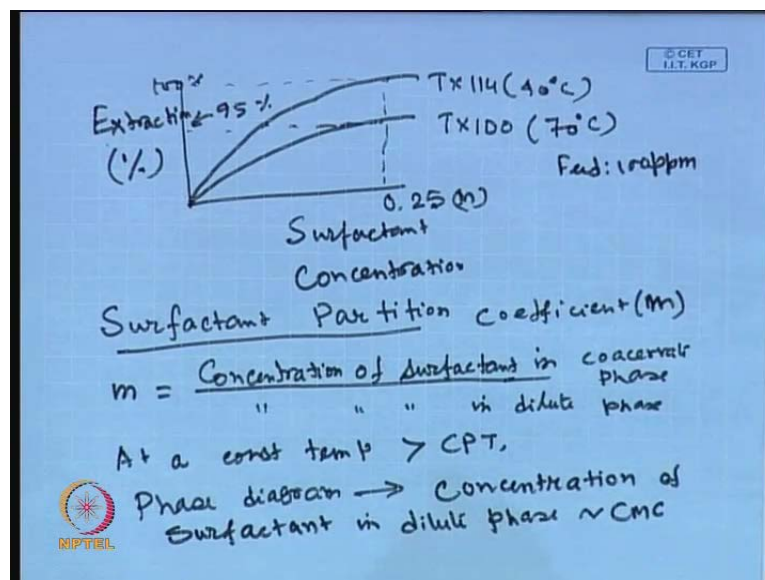 © CET
I.I.T. KGP
100 %
TX 114 (40°C)
Extraction ← 95 %
TX 100 (70°C)
(%)
Feed: 100 ppm
0.25 (M)
Surfactant
Concentration
Surfactant Partition coefficient (m)
m = Concentration of surfactant in coacervate phase
" " " in dilute phase
At a const temp > CPT,
Phase diagram → Concentration of
surfactant in dilute phase ~ CMC
NPTEL